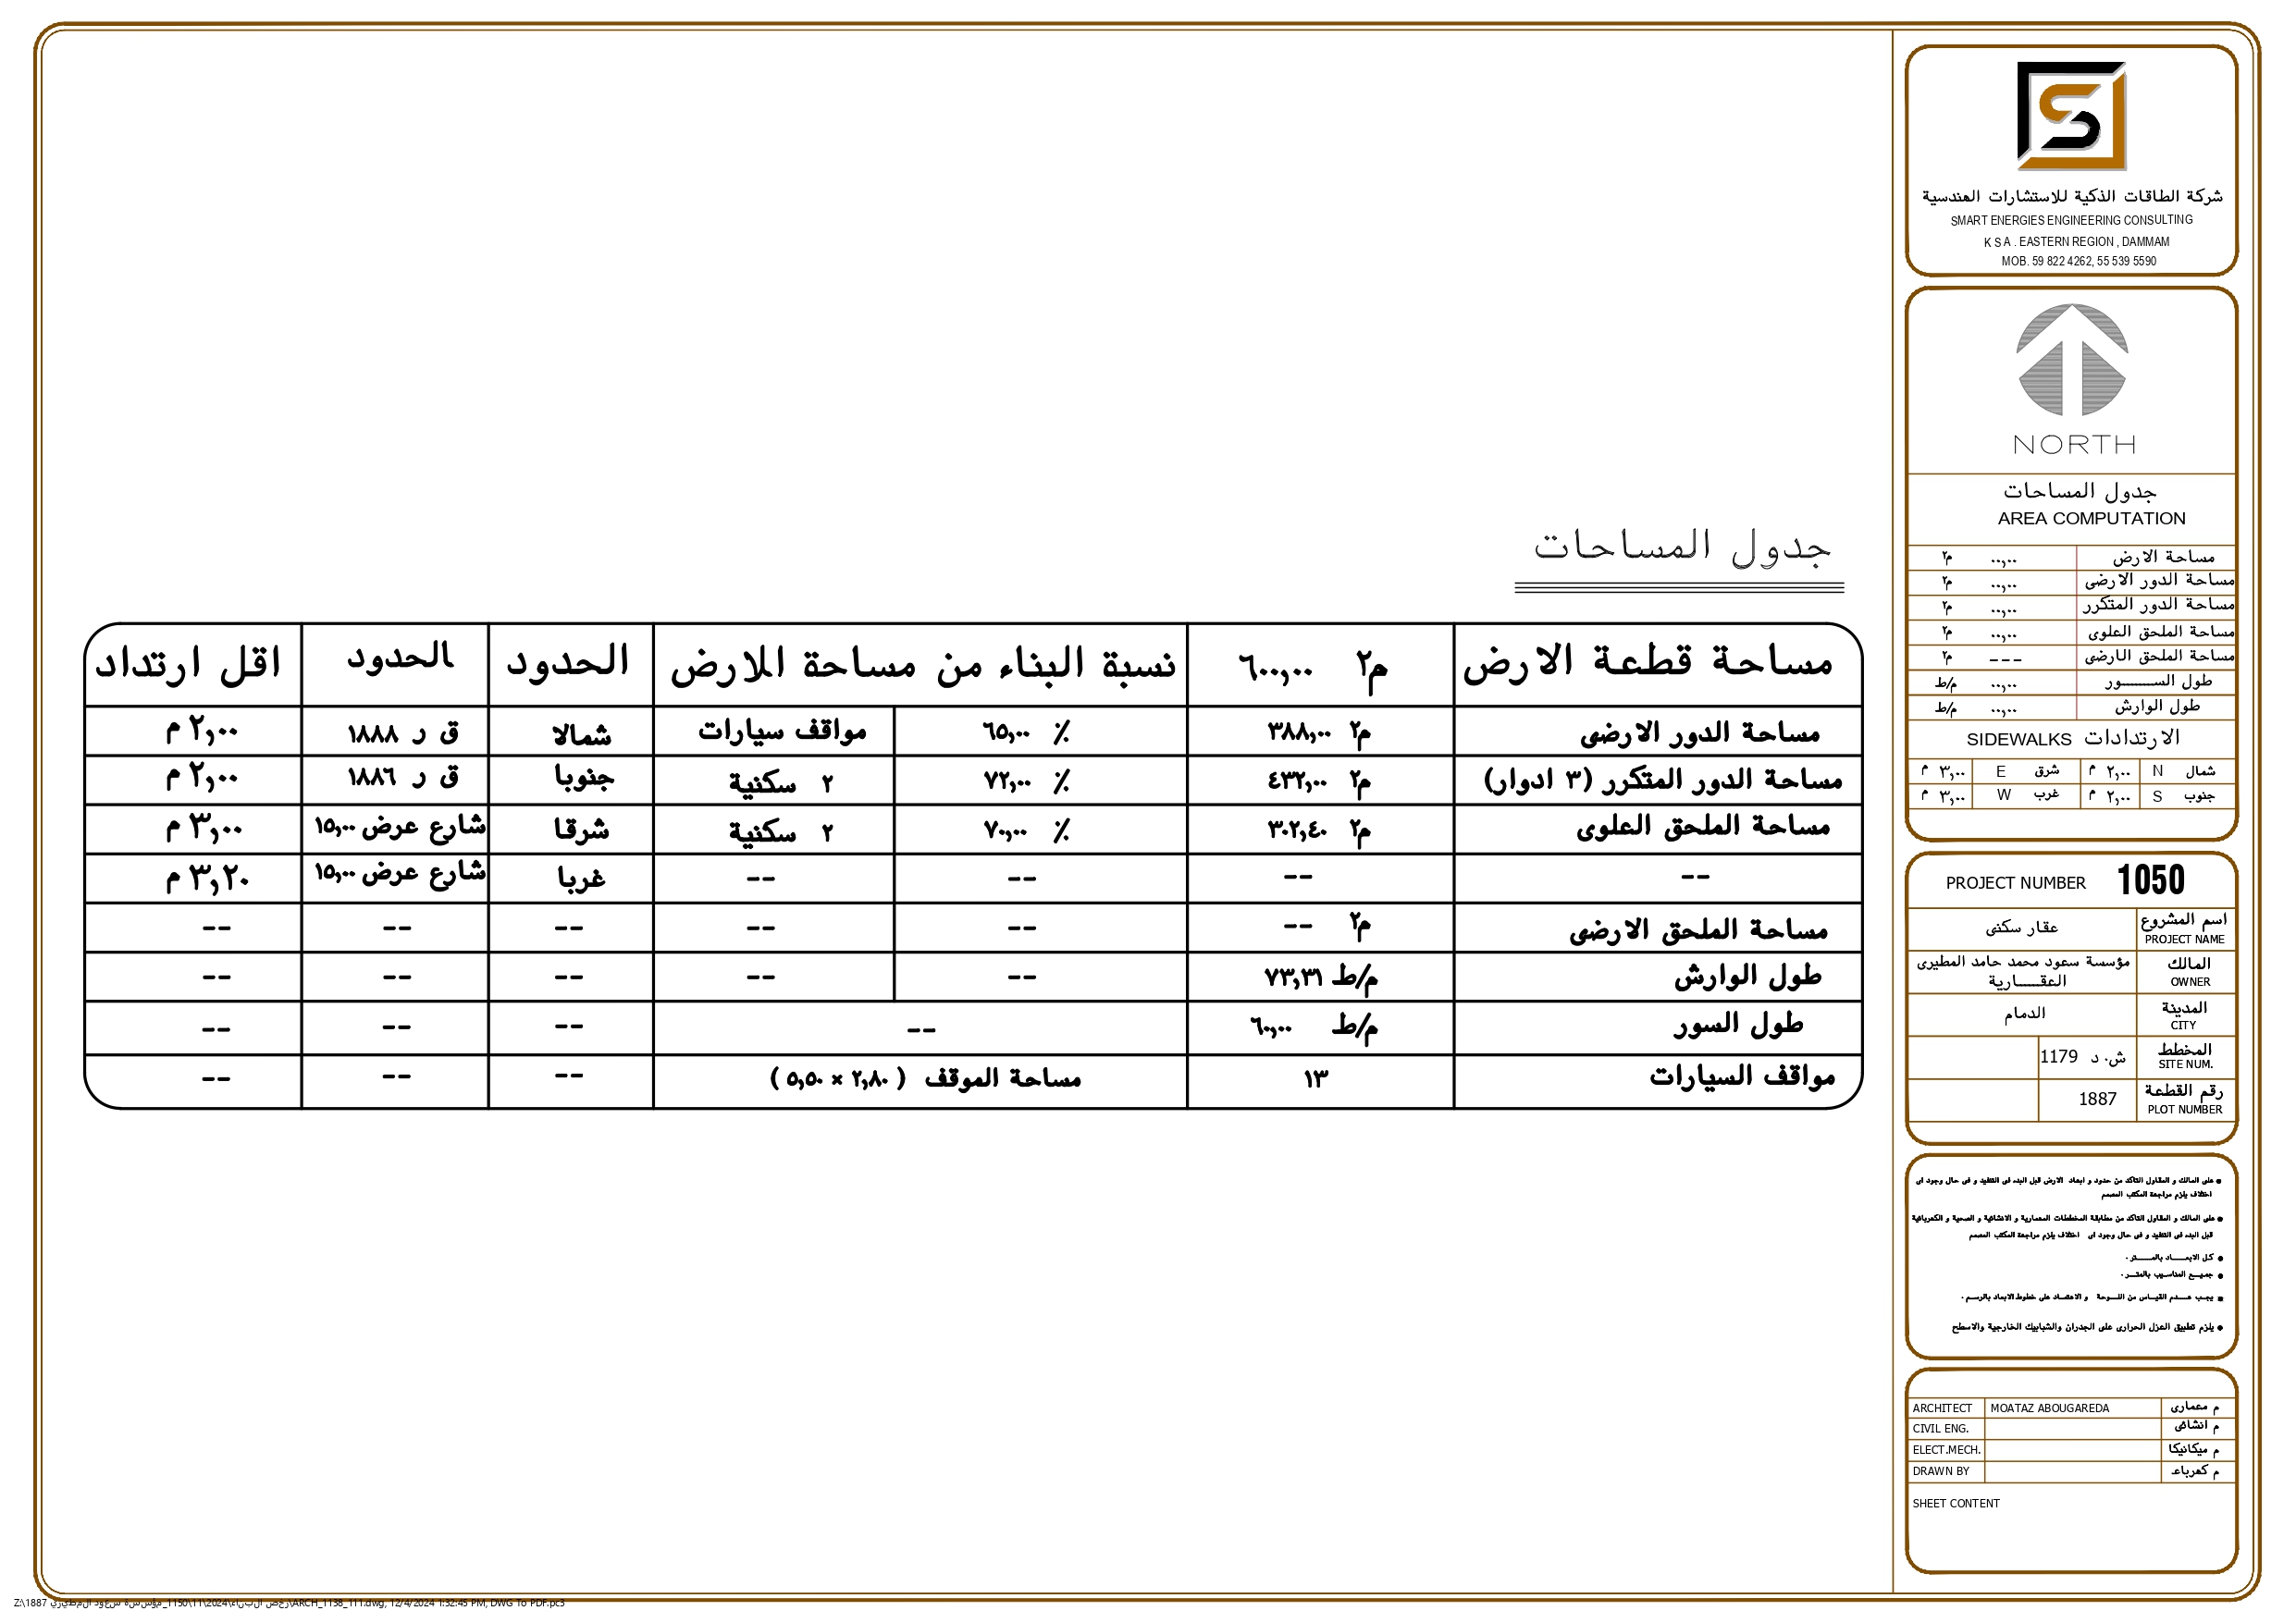 جدول المساحات
مساحة قطعة الارض	٦٠٠,٠٠ م٢	نسبة البناء من مساحة اللارض	الحدود	الحدود	اقل ارتداد
مساحة الدور الارضى	٣٨٨,٠٠ م٢	٦٥,٠٠ ٪	مواقف سيارات	شمالا	ق ر ١٨٨٨	٢,٠٠ م
مساحة الدور المتكرر (٣ ادوار)	٤٣٢,٠٠ م٢	٧٢,٠٠ ٪	٢ سكنية	جنوبا	ق ر ١٨٨٦	٢,٠٠ م
مساحة الملحق العلوى	٣٠٢,٤٠ م٢	٧٠,٠٠ ٪	٢ سكنية	شرقا	شارع عرض ١٥,٠٠	٣,٠٠ م
--	--	--	--	غربا	شارع عرض ١٥,٠٠	٣,٢٠ م
مساحة الملحق الارضى	-- م٢	--	--	--	--	--
طول الوارش	٧٣,٣١ م/ط	--	--	--	--	--
طول السور	٦٠,٠٠ م/ط	--	--	--	--
مواقف السيارات	١٣	مساحة الموقف ( ٢,٨٠ × ٥,٥٠ )	--	--	--
شركة الطاقات الذكية للاستشارات الهندسية
SMART ENERGIES ENGINEERING CONSULTING
K S A . EASTERN REGION , DAMMAM
MOB. 59 822 4262, 55 539 5590
NORTH
جدول المساحات
AREA COMPUTATION
مساحة الارض	٠٠,٠٠	م٢
مساحة الدور الارضى	٠٠,٠٠	م٢
مساحة الدور المتكرر	٠٠,٠٠	م٢
مساحة الملحق العلوى	٠٠,٠٠	م٢
مساحة الملحق الارضى	---	م٢
طول الســـــــور	٠٠,٠٠	م/ط
طول الوارش	٠٠,٠٠	م/ط
الارتدادات SIDEWALKS
شمال	N	٢,٠٠ م	شرق	E	٣,٠٠ م
جنوب	S	٢,٠٠ م	غرب	W	٣,٠٠ م
PROJECT NUMBER 1050
اسم المشروع	عقار سكنى
PROJECT NAME
المالك	مؤسسة سعود محمد حامد المطيرى
OWNER	العقـــــارية
المدينة	الدمام
CITY
المخطط	ش. د 1179
SITE NUM.
رقم القطعة	1887
PLOT NUMBER
● على المالك و المقاول التاكد من حدود و ابعاد الارض قبل البدء فى التنفيذ و فى حال وجود اى
اختلاف يلزم مراجعة المكتب المصمم
● على المالك و المقاول التاكد من مطابقة المخططات المعمارية و الانشائية و الصحية و الكهربائية
قبل البدء فى التنفيذ و فى حال وجود اى اختلاف يلزم مراجعة المكتب المصمم
● كـل الابعـــــاد بالمـــــتر .
● جميـــع المناسـيب بالمتـــر .
■ يجـب عـــدم القيـــاس من اللـــوحة و الاعتمــاد على خطوط الابعاد بالرســم .
● يلزم تطبيق العزل الحرارى على الجدران والشبابيك الخارجية والاسطح
ARCHITECT	MOATAZ ABOUGAREDA	م معمارى
CIVIL ENG.	م انشائى
ELECT.MECH.	م ميكانيكا
DRAWN BY	م كهرباء
SHEET CONTENT